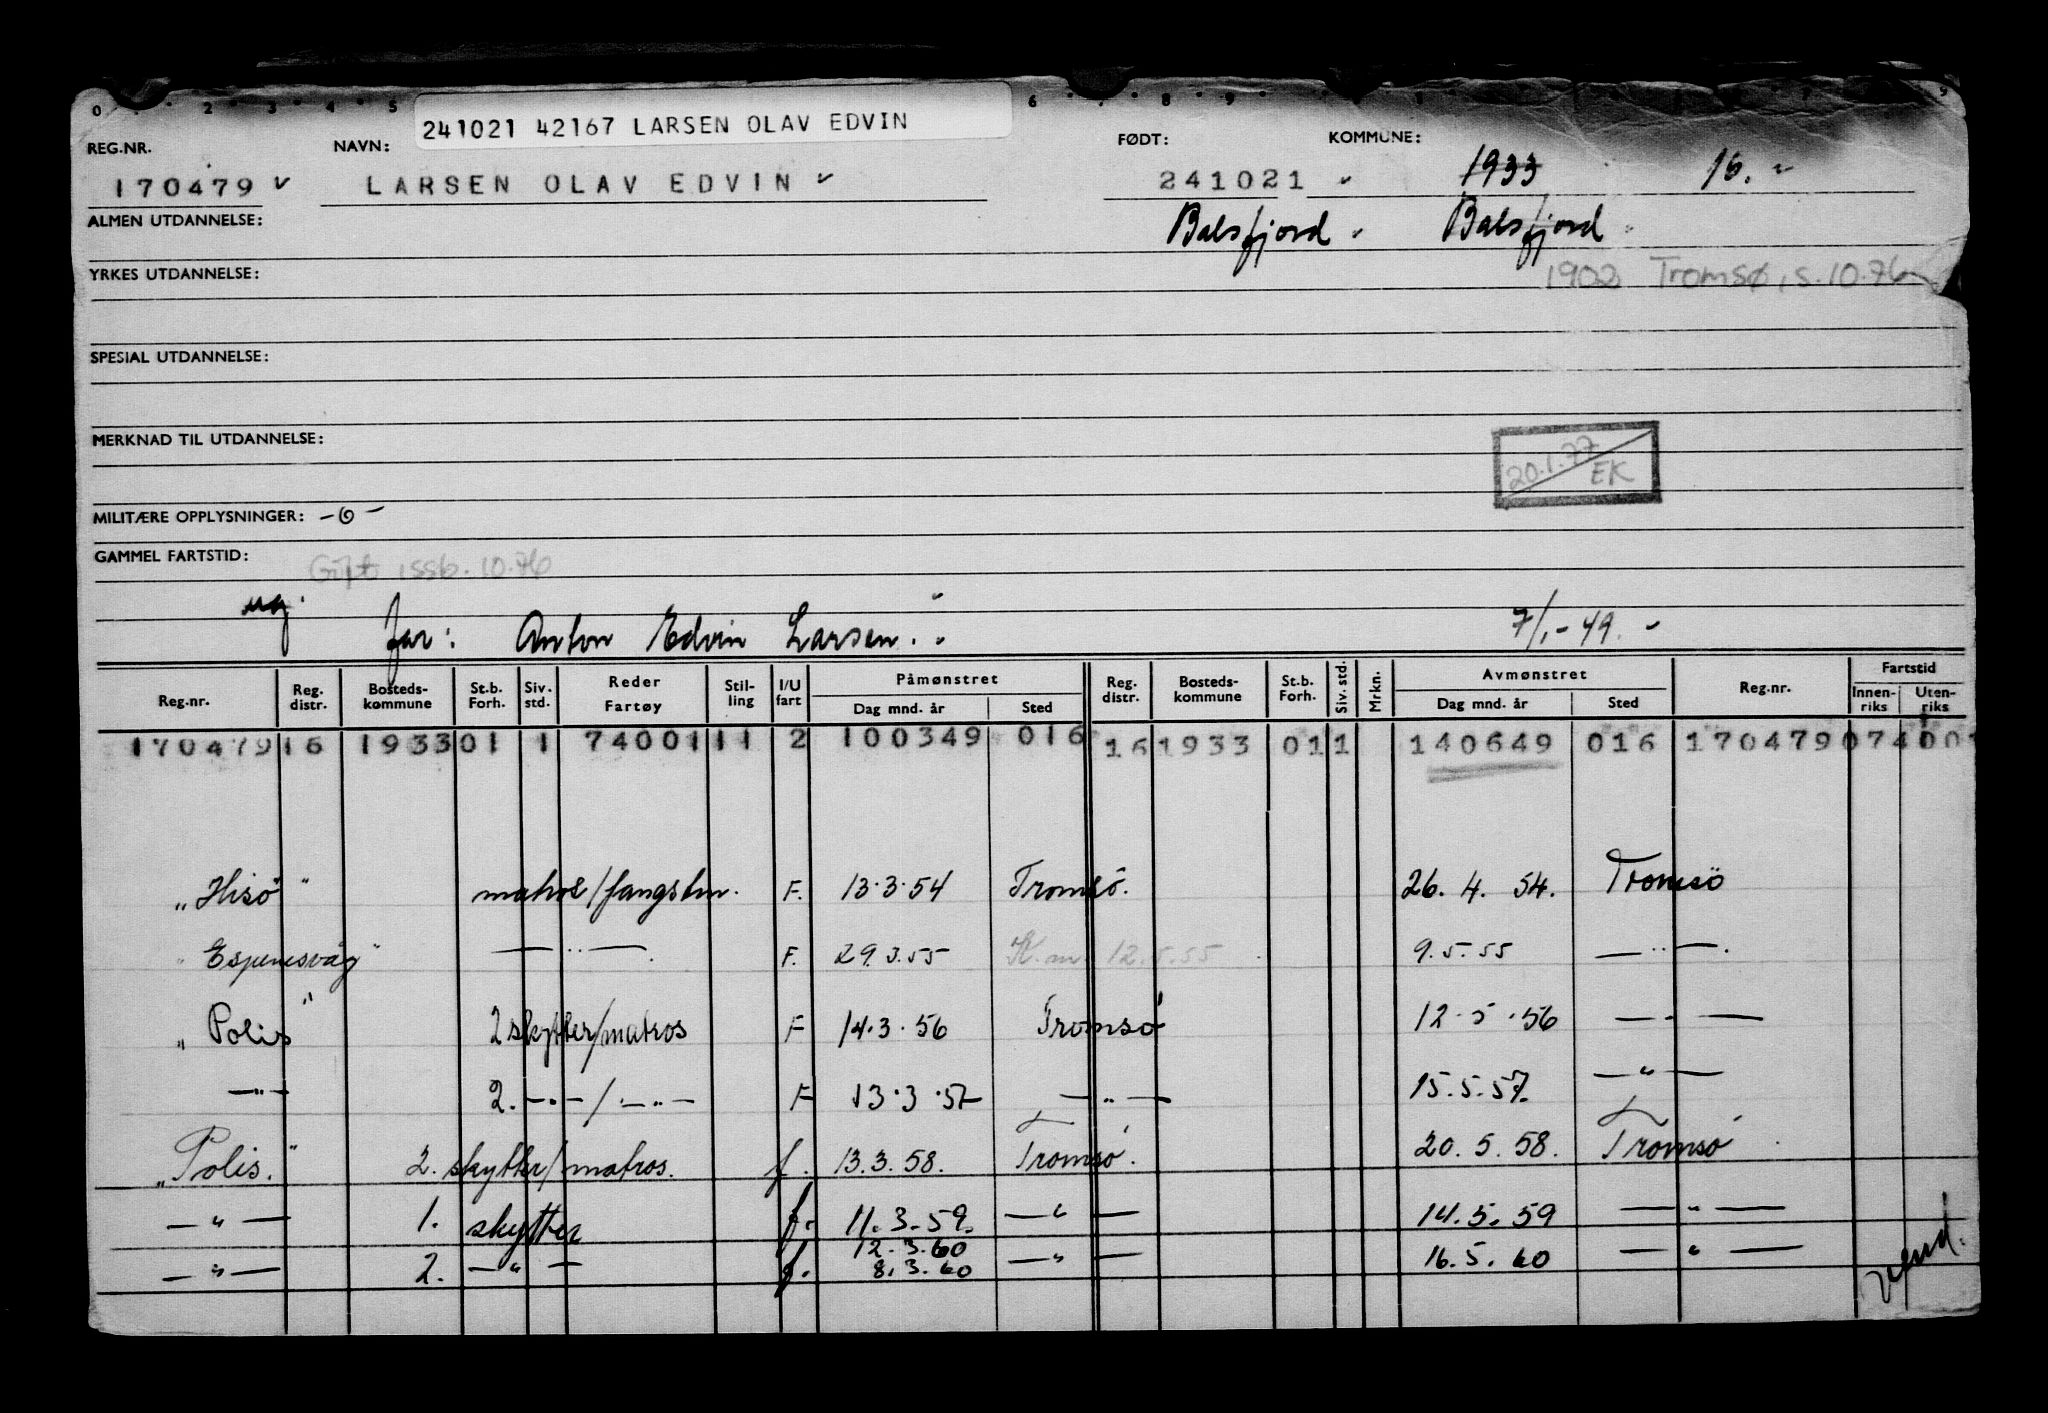 0 2 3 4 5 6 8 9 9
241021 42167 LARSEN OLAV EDVIN
REG.NR. NAVN: FØDT: KOMMUNE:
170479 LARSEN OLAV EDVIN 241021 1933 16.
ALMEN UTDANNELSE: Balsfjord Balsfjord
YRKES UTDANNELSE: 1902 Tromsø, s. 10.76
SPESIAL UTDANNELSE:
MERKNAD TIL UTDANNELSE:
20.1.77 EK
MILITÆRE OPPLYSNINGER: -0-
GAMMEL FARTSTID:
Gift 10.76
ug. far: Anton Edvin Larsen. 7/1-49.
Reg.nr. Reg. distr. Bosteds-kommune St.b. Forh. Siv. std. Reder Fartøy Stil-ling I/U fart Påmønstret Dag mnd. år Sted Reg. distr. Bosteds-kommune St.b. Forh. Siv. std. Mrkn. Avmønstret Dag mnd. år Sted Reg.nr. Fartstid Innen-riks Uten-riks
170479 16 1933 01 1 74001 11 2 100349 016 16 1933 01 1 140649 016 170479 074001
"Hisö" matros/fangstm. F. 13.3.54 Tromsö. 26.4.54. Tromsö
"Espenesvåg" —"— F. 29.3.55 12.5.55 9.5.55 —"—.
"Polis" 2 skytter/matros F 14.3.56 Tromsö 12.5.56 —"—
—"— 2. —"—/—"— F 13.3.57 —"— 15.5.57. —"—
"Polis." 2. skytter/matros. f. 13.3.58. Tromsö. 20.5.58. Tromsö
—"— 1. skytter f. 11.3.59. —"— 14.5.59 —"—
12.3.60
—"— 2. —"— f. 8.3.60 —"— 16.5.60 —"—